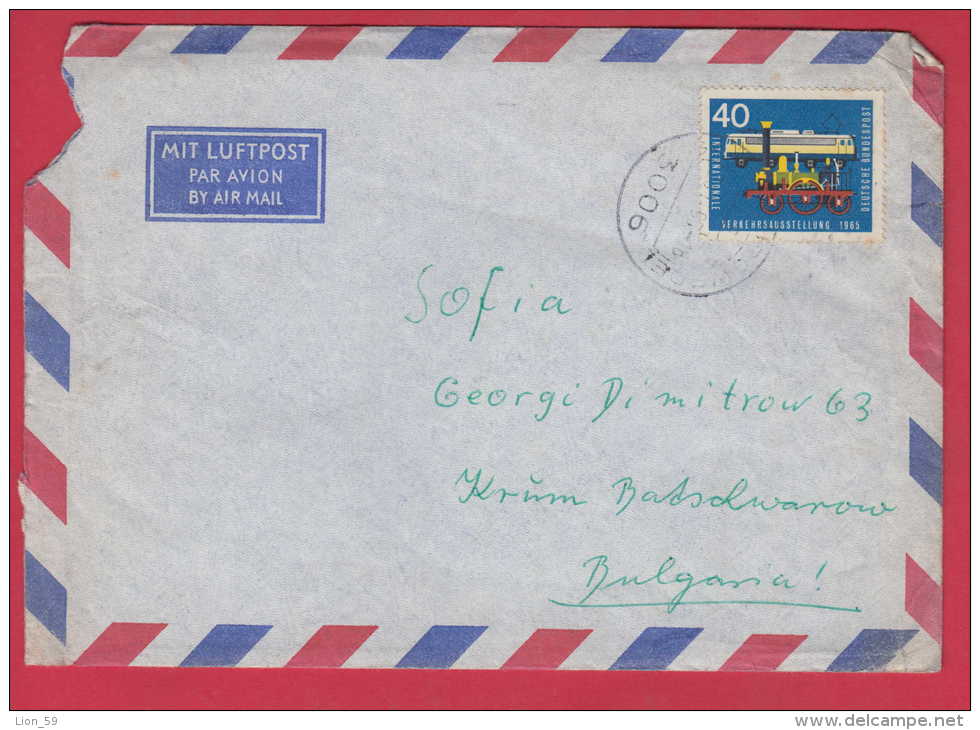 MIT LUFTPOST
PAR AVION
BY AIR MAIL
40
INTERNATIONALE
VERKEHRSAUSSTELLUNG 1965
DEUTSCHE BUNDESPOST
3006
Sofia
Georgi Dimitrow 63
Krŭm Batschwarow
Bulgaria!
Lion_59
delcampe.net